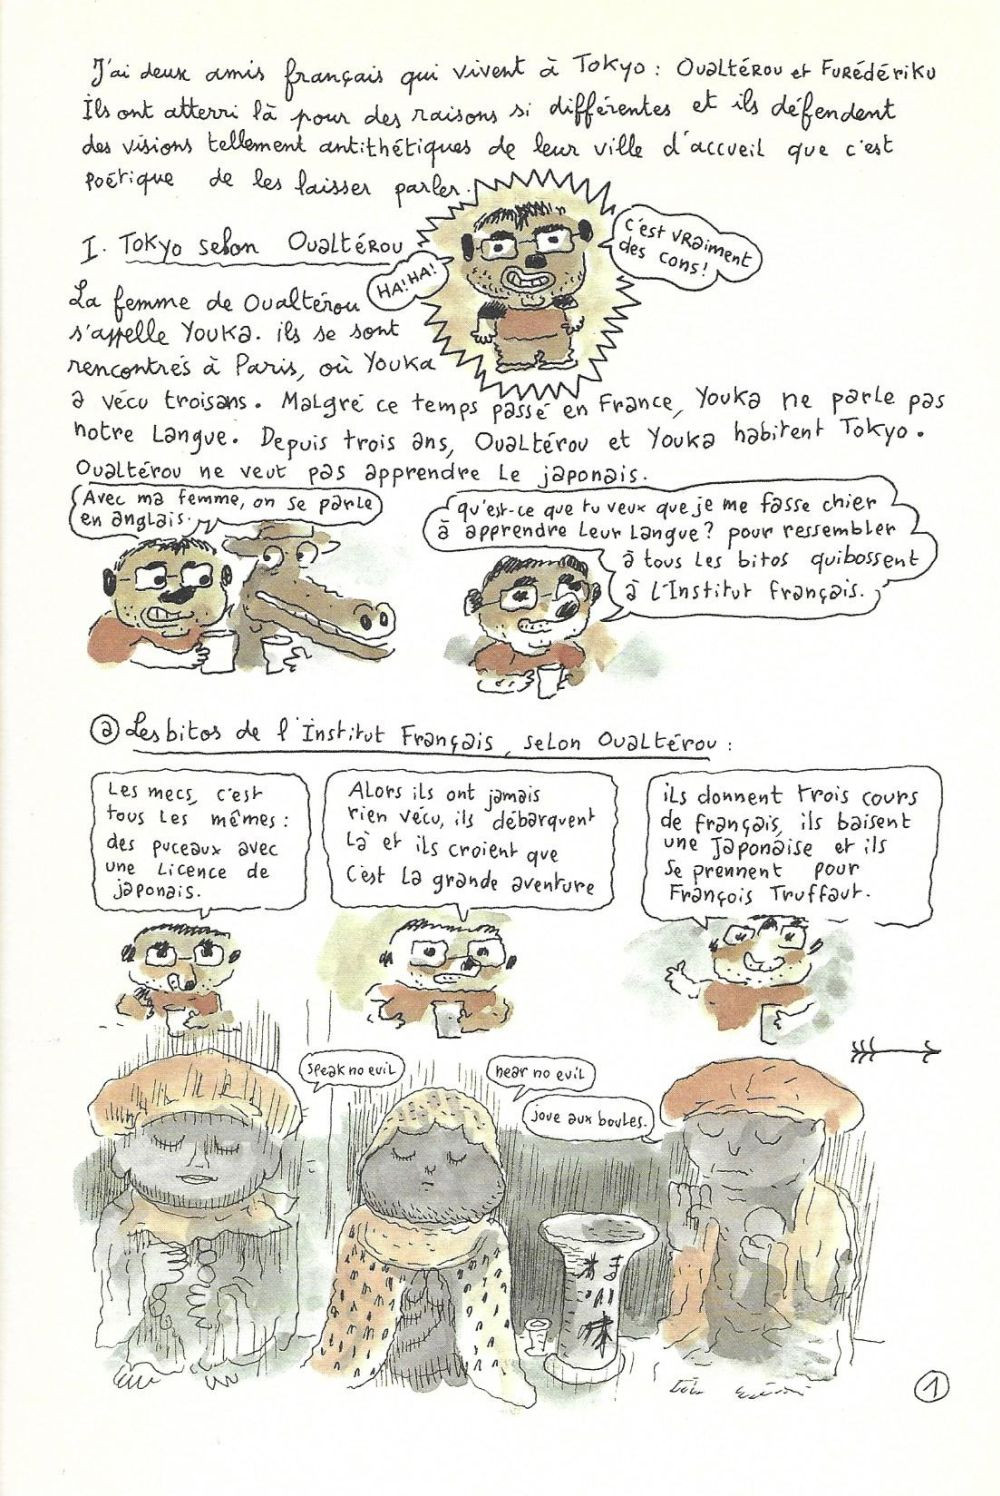 J'ai deux amis français qui vivent à Tokyo : Oualtérou et Furédériku
Ils ont atterri là pour des raisons si différentes et ils défendent
des visions tellement antithétiques de leur ville d'accueil que c'est
poétique de les laisser parler.
I. Tokyo selon Oualtérou
HA! HA!
C'est vraiment
des cons!
La femme de Oualtérou
s'appelle Youka. ils se sont
rencontrés à Paris, où Youka
a vécu trois ans. Malgré ce temps passé en France, Youka ne parle pas
notre langue. Depuis trois ans, Oualtérou et Youka habitent Tokyo.
Oualtérou ne veut pas apprendre le japonais.
Avec ma femme, on se parle
en anglais.
qu'est-ce que tu veux que je me fasse chier
à apprendre leur langue? pour ressembler
à tous les bitos qui bossent
à l'Institut français.
a Les bitos de l'Institut Français, selon Oualtérou :
Les mecs, c'est
tous les mêmes :
des puceaux avec
une licence de
japonais.
Alors ils ont jamais
rien vécu, ils débarquent
là et ils croient que
c'est la grande aventure
ils donnent trois cours
de français, ils baisent
une Japonaise et ils
se prennent pour
François Truffaut.
speak no evil
hear no evil
joue aux boules.
味
1